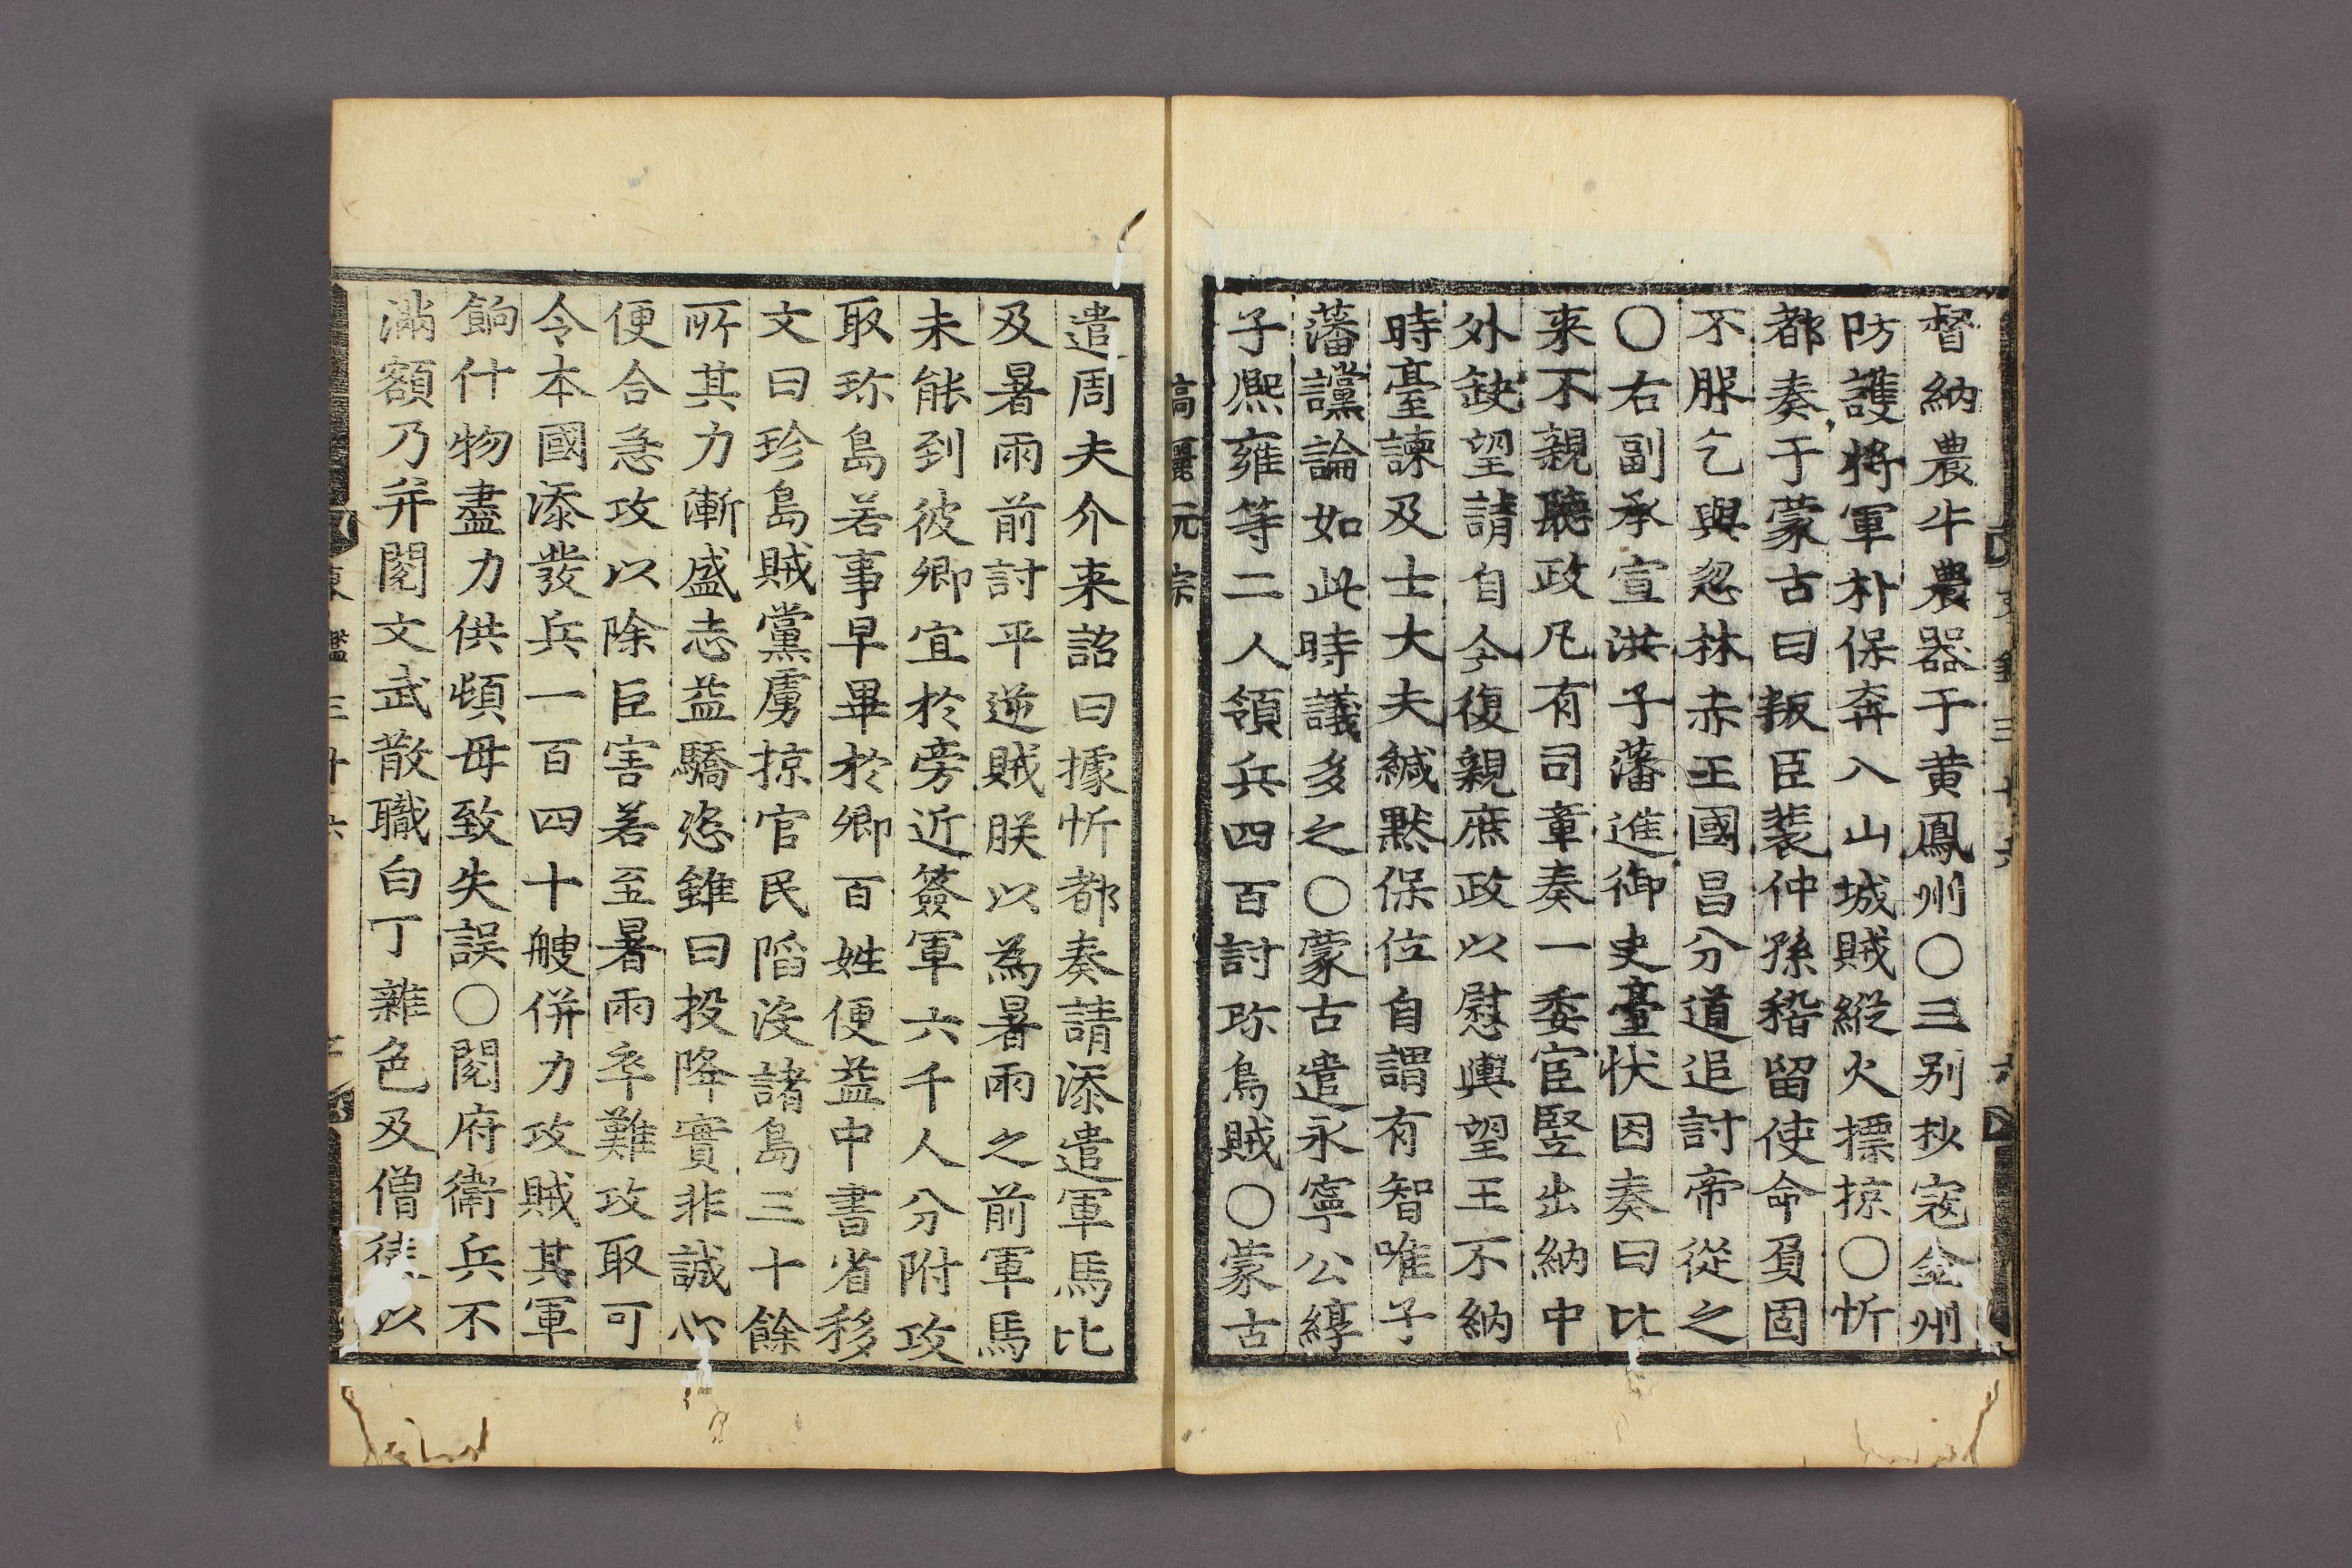 督納農牛農器于黄鳳州〇三别抄寇金州
防護將軍朴保奔入山城賊縱火摽掠〇忻
都奏于蒙古曰叛臣裴仲孫稽留使命負固
不服乞與忽林赤王國昌分道追討帝從之
〇右副承宣洪子藩進御史臺狀因奏曰比
来不親聽政凡有司章奏一委宦竪出納中
外缺望請自今復親庶政以慰輿望王不納
時臺諫及士大夫緘黙保位自謂有智唯子
藩讜論如此時議多之〇蒙古遣永寧公綧
子熈雍等二人領兵四百討珎島賊〇蒙古
高麗元宗
遣周夫介来詔曰據忻都奏請添遣軍馬比
及暑雨前討平逆賊朕以為暑雨之前軍馬
未能到彼卿宜於旁近簽軍六千人分附攻
取珎島若事早畢於卿百姓便益中書省移
文曰珍島賊黨虜掠官民陷没諸島三十餘
所其力漸盛志益驕恣雖曰投降實非誠心
便合急攻以除巨害若至暑雨卒難攻取可
令本國添發兵一百四十艘併力攻賊其軍
餉什物盡力供頓毋致失誤〇閱府衛兵不
滿額乃并閱文武散職白丁雜色及僧徒以